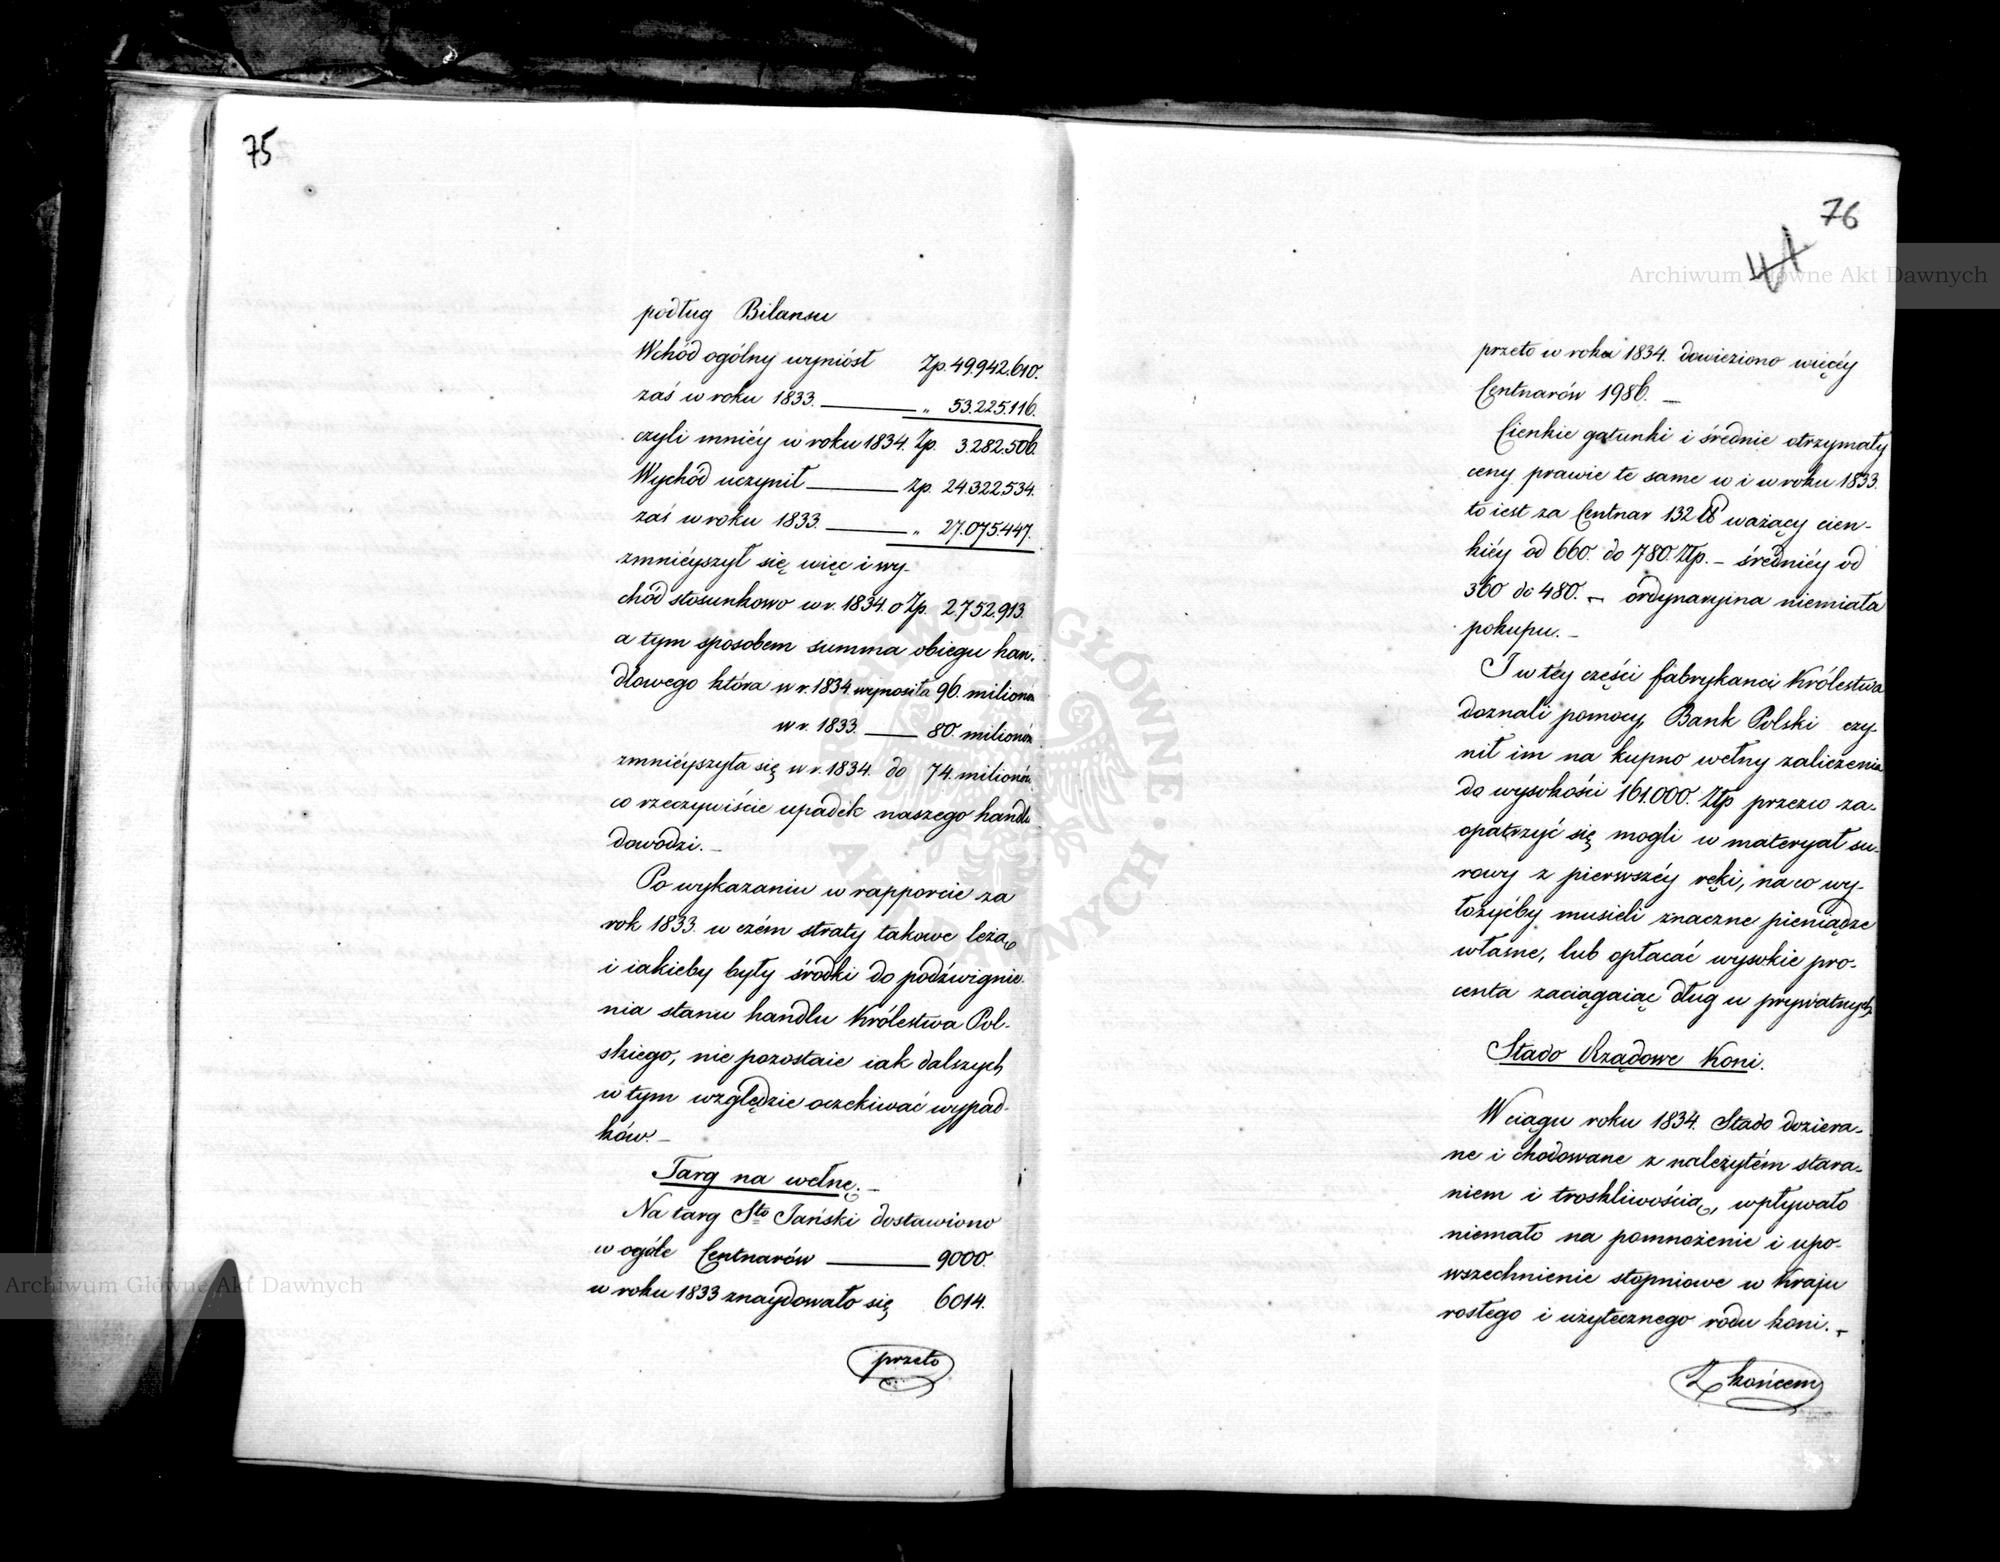 75
podług Bilansu
Wchód ogólny wyniósł Zp. 49.942.610.
zaś w roku 1833. „ 53.225.116.
czyli mnićy w roku 1834. Zp. 3.282.506.
Wychód uczynił Zp. 24.322.534.
zaś w roku 1833. „ 27.075.447.
zmnićyszył się więc i wy-
chód stosunkowo w r. 1834. o Zp. 2.752.913.
a tym sposobem summa obiegu han-
dlowego która w r. 1834. wynosiła 96. milionów
w r. 1833. 80. milionów
zmnićyszyła się w r. 1834. do 74. milionów
co rzeczywiście upadek naszego handlu
dowodzi. –
Po wykazaniu w rapporcie za
rok 1833. w czém straty takowe leżą
i iakieby były środki do podźwignie-
nia stanu handlu Królestwa Pol-
skiego, nie pozostaie iak dalszych
w tym względzie oczekiwać wypad-
ków. –
Targ na wełnę. –
Na targ Sto Jański dostawiono
w ogóle Centnarów 9000.
w roku 1833 znaydowało się 6014.
przeto
76
41
przeto w roku 1834. dowieziono więcéy
Centnarów 1986. –
Cienkie gatunki i średnie otrzymały
ceny prawie te same w i w roku 1833.
to iest za Centnar 132 ℔ ważący cien-
kiéy od 660. do 780. Złp. – średniéy od
360 do 480. – ordynaryina niemiała
pokupu. –
I w téy części fabrykanci Królestwa
doznali pomocy, Bank Polski czy-
nił im na kupno wełny zaliczenia
do wysokości 161.000. Złp przezco za-
opatrzyć się mogli w materyał su-
rowy z pierwszéy ręki, na co wy-
łożyćby musieli znaczne pieniądze
własne, lub opłacać wysokie pro-
centa zaciągaiąc dług u prywatnych.
Stado Rządowe Koni.
W ciągu roku 1834. Stado doziera-
ne i chodowane z należytém stara-
niem i troskliwością, wpływało
niemało na pomnożenie i upo-
wszechnienie stopniowe w Kraju
rosłego i użytecznego rodu koni. –
Z końcem
Archiwum Główne Akt Dawnych
Archiwum Główne Akt Dawnych
ARCHIWUM GŁÓWNE · AKT DAWNYCH ·